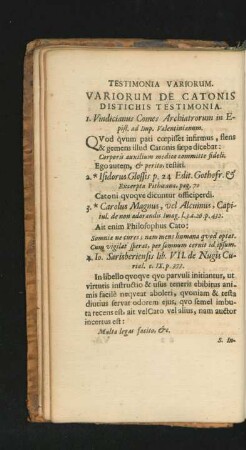 TESTIMONIA VARIORUM.
VARIORUM DE CATONIS
DISTICHIS TESTIMONIA.
1. Vindicianus Comes Archiatrorum in E-
pist. ad Imp. Valentinianum.
QVod qvum pati cœpisset infirmus, flens
& gemens illud Catonis sæpe dicebat:
Corporis auxilium medico committe fideli.
Ego autem, & perito, testiri.
2.* Isidorus Glossis p. 24 Edit. Gothofr. &
Excerpta Pithœana, pag. 70
Catoni qvoqve dicuntur officiperdi.
3.* Carolus Magnus, vel Alcuinus, Capi-
tul. de non adorandis imag. l.
Ait enim Philosophus Cato:
Somnia ne cures; nam mens humana qvod optat.
Cum vigilat sperat, per somnum cernit id ipsum.
*. Io. Sarisberiensis lib. VII. de Nugis Cu-
rial. c. IX. p.
In libello qvoqve qvo parvuli initiantur, ut
virtutis instructio & usus teneris ebibitus ani-
mis facile neqveat aboleri, qvoniam & testa
diutius servat odorem ejus, qvo semel imbu-
ta recens est, ait vel Cato vel alius, nam auctor
incertus est:
Multa legas facito, &c.